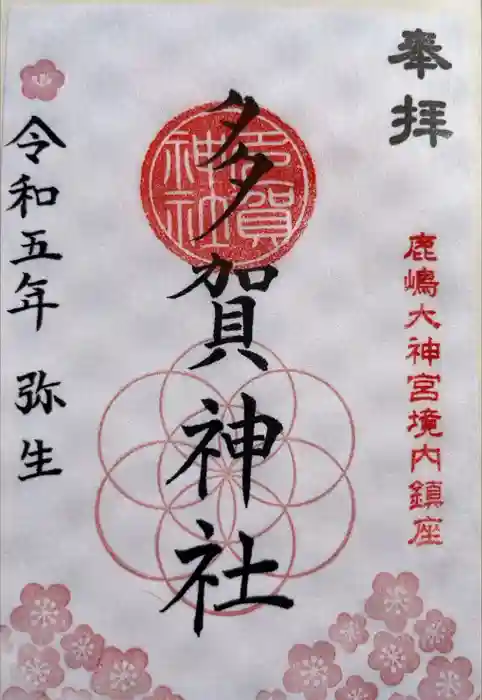 奉拝
鹿嶋大神宮境内鎮座
多賀神社
多賀神社
令和五年 弥生